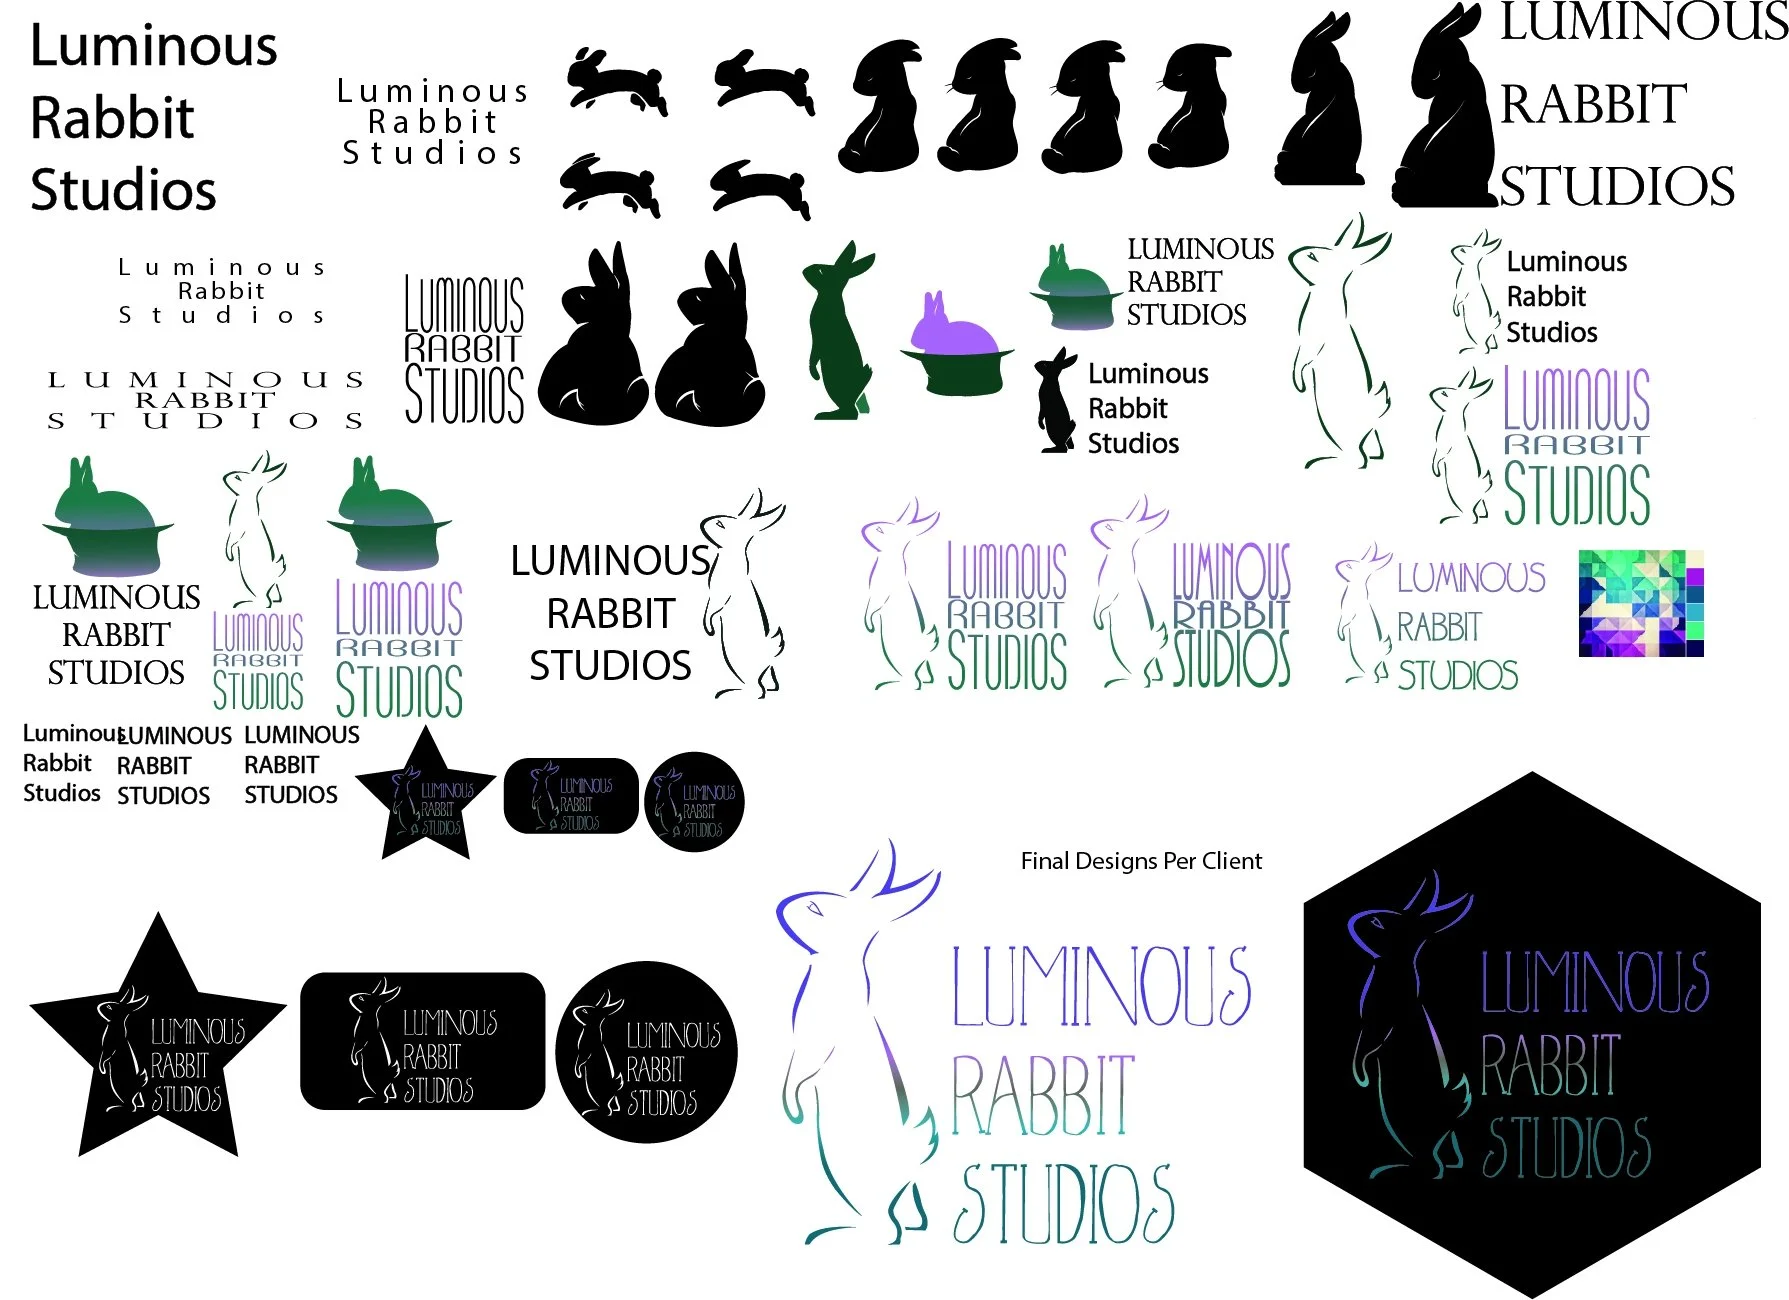 Luminous
Rabbit
Studios
Luminous
Rabbit
Studios
LUMINOUS
RABBIT
STUDIOS
Luminous
Rabbit
Studios
LUMINOUS
RABBIT
STUDIOS
LUMINOUS
RABBIT
STUDIOS
LUMINOUS
RABBIT
STUDIOS
Luminous
Rabbit
Studios
Luminous
Rabbit
Studios
LUMINOUS
RABBIT
STUDIOS
LUMINOUS
RABBIT
STUDIOS
LUMINOUS
RABBIT
STUDIOS
LUMINOUS
RABBIT
STUDIOS
LUMINOUS
RABBIT
STUDIOS
LUMINOUS
RABBIT
STUDIOS
LUMINOUS
RABBIT
STUDIOS
LUMINOUS
RABBIT
STUDIOS
Luminous
Rabbit
Studios
LUMINOUS
RABBIT
STUDIOS
LUMINOUS
RABBIT
STUDIOS
LUMINOUS
RABBIT
STUDIOS
LUMINOUS
RABBIT
STUDIOS
LUMINOUS
RABBIT
STUDIOS
Final Designs Per Client
LUMINOUS
RABBIT
STUDIOS
LUMINOUS
RABBIT
STUDIOS
LUMINOUS
RABBIT
STUDIOS
LUMINOUS
RABBIT
STUDIOS
LUMINOUS
RABBIT
STUDIOS